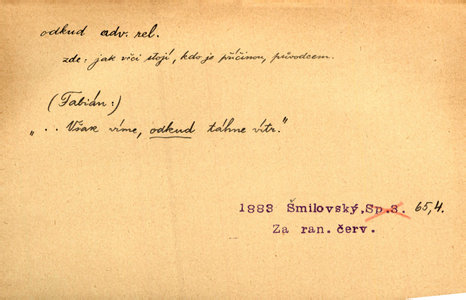 odkud adv. rel.
zde: jak věci stojí, kdo je příčinou, původcem.
(Fabián:)
„.. Však víme, odkud táhne vítr."
1883 Šmilovský, Sp. 3. 65,4.
Za ran. červ.